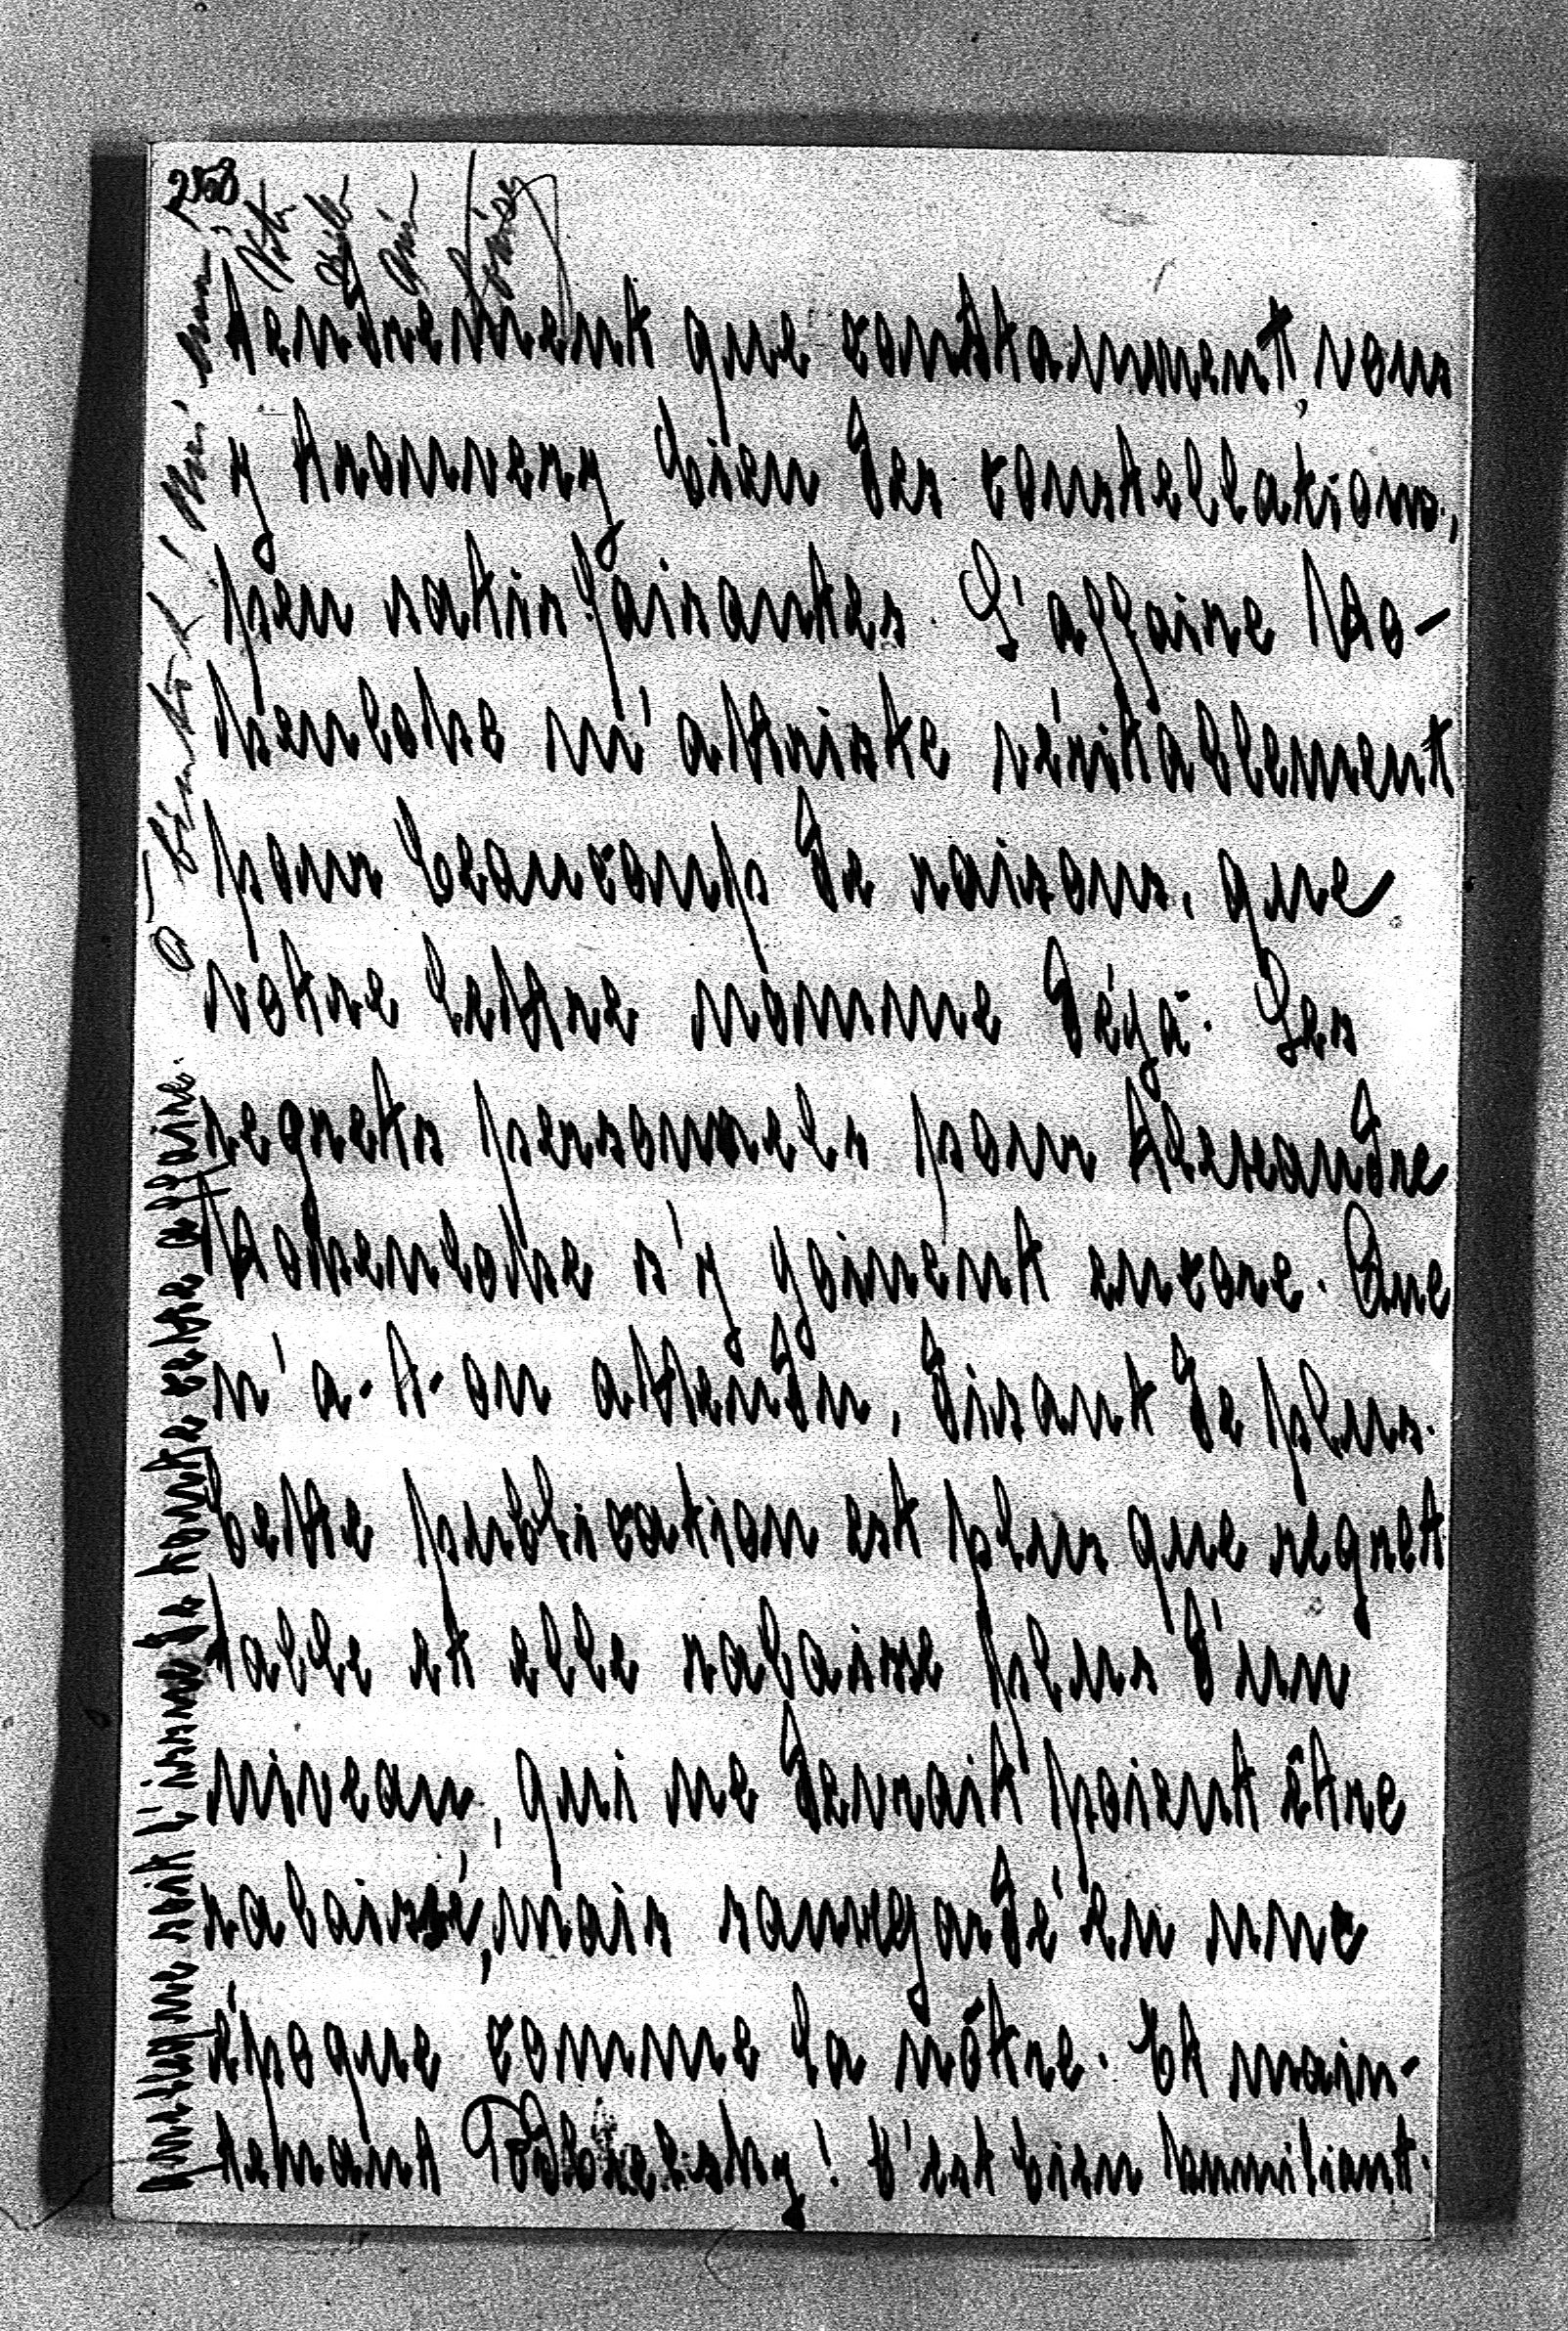 2558
tendrement que constamment, vous
y trouverez bien des constellations,
peu satisfaisantes. L'affaire Ho-
henlohe m'attriste véritablement
pour beaucoup de raisons, que
votre lettre nomme déjà. Les
regrets personnels pour Alexandre
Hohenlohe s'y joinent encore. Que
n'a-t-on attendu, disant de plus.
Cette publication est plus que regret
table et elle rabaisse plus d'un
niveau, qui ne devrait poient être
rabaissé, mais sauvegardé en une
époque comme la nôtre. Et main-
tenant Podbielsky! C'est bien humiliant.
quelque soit l'issue de toute cette affaire.
à bientôt! Mais
Votre
vieille
amie